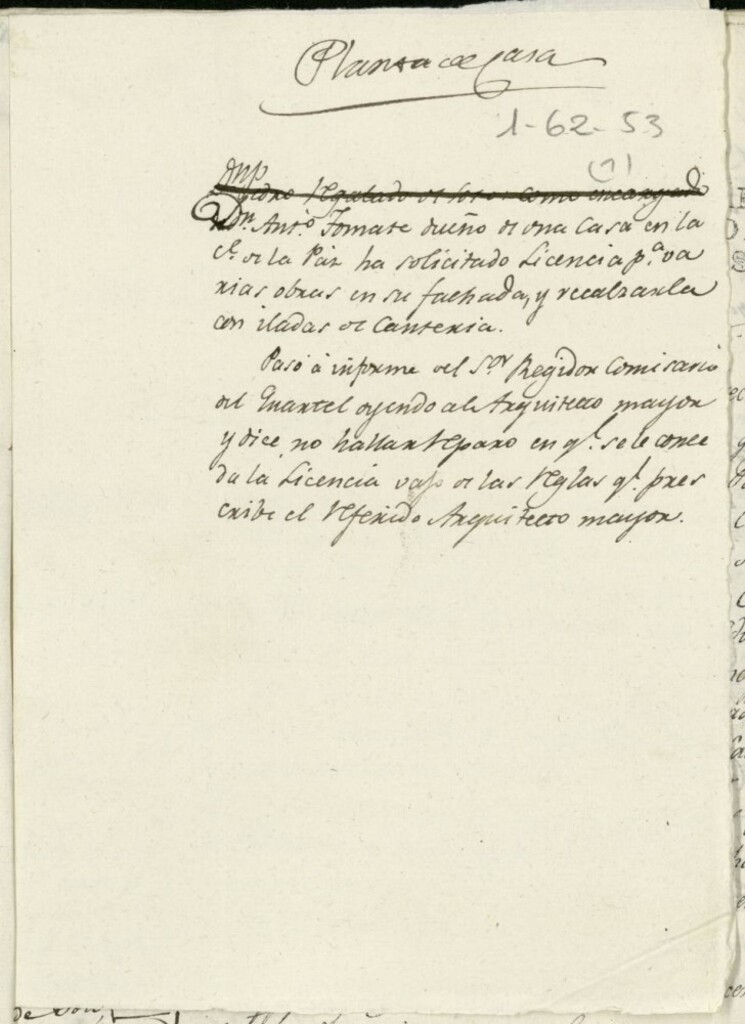 Planta de Casa
1-62-53
(7)
Pedro Regalado de Soto como encargado
Dn. Anto. Tomate dueño de una Casa en la
Ce. de la Paz ha solicitado Licencia pa. va
rias obras en su fachada, y recalzarla
con iladas de Canteria.
Pasó á informe del Sor. Regidor Comisario
del Quartel oyendo al Arquitecto mayor
y dice, no hallar reparo en qe. se le conce
da la Licencia vajo de las Reglas qe. pres
cribe el referido Arquitecto mayor.